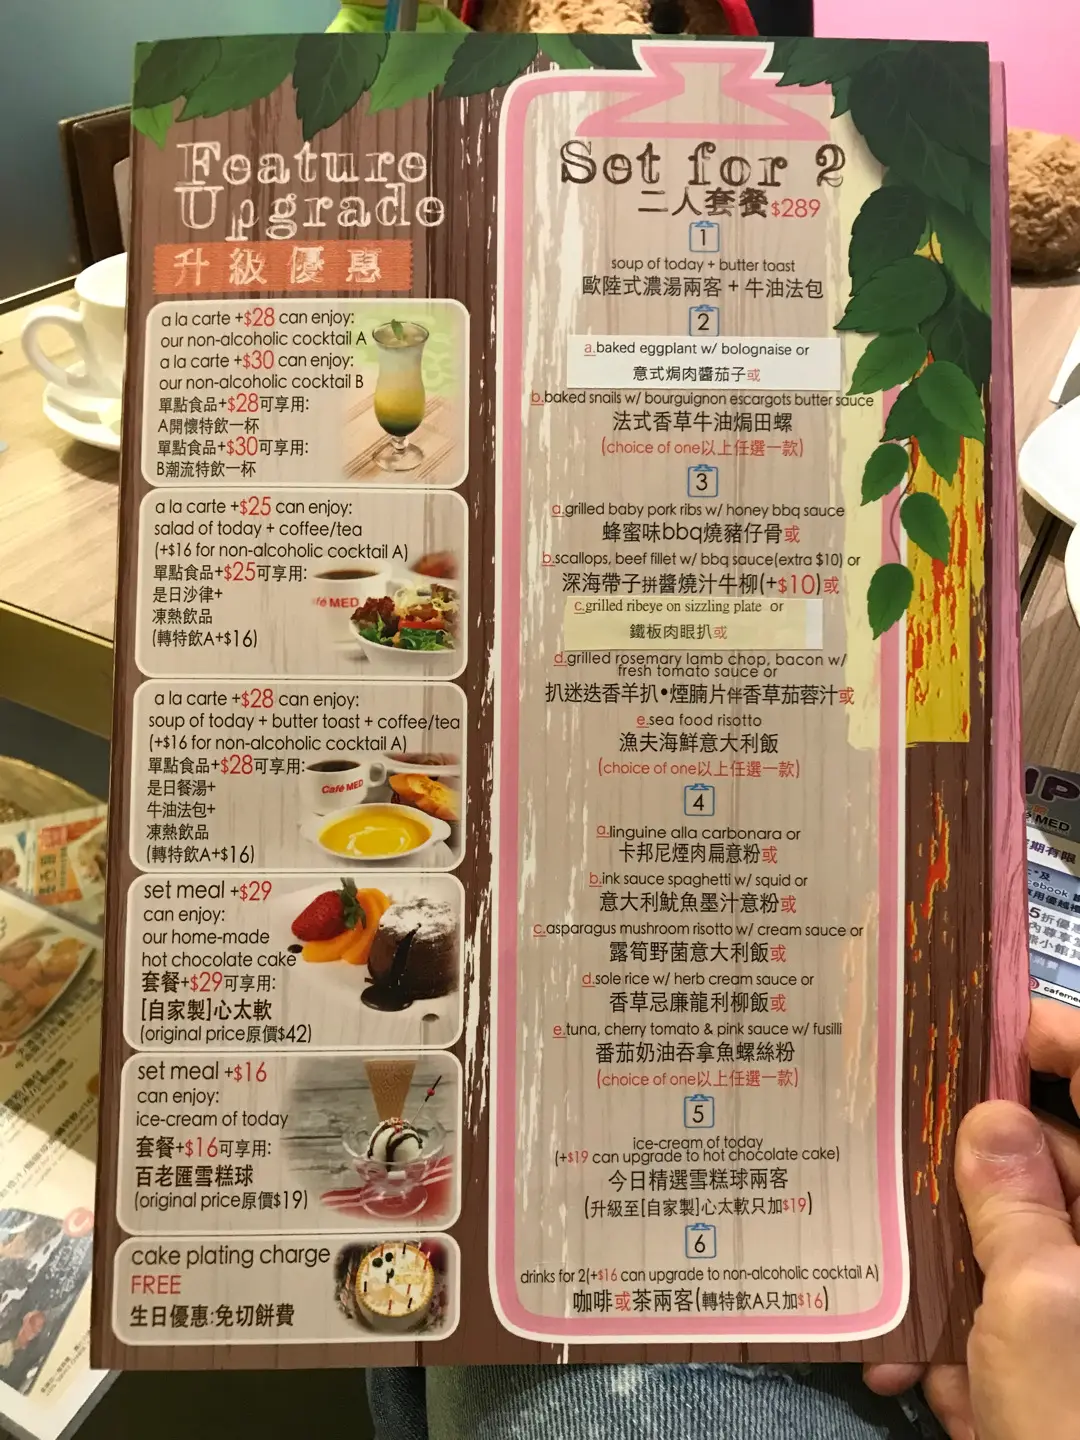 Feature
Upgrade
升級優惠
a la carte +$28 can enjoy:
our non-alcoholic cocktail A
a la carte +$30 can enjoy:
our non-alcoholic cocktail B
單點食品+$28可享用:
A開懷特飲一杯
單點食品+$30可享用:
B潮流特飲一杯
a la carte +$25 can enjoy:
salad of today + coffee/tea
(+$16 for non-alcoholic cocktail A)
單點食品+$25可享用:
是日沙律+
凍熱飲品
(轉特飲A+$16)
fé MED
a la carte +$28 can enjoy:
soup of today + butter toast + coffee/tea
(+$16 for non-alcoholic cocktail A)
單點食品+$28可享用:
是日餐湯+
牛油法包+
凍熱飲品
(轉特飲A+$16)
Café MED
set meal +$29
can enjoy:
our home-made
hot chocolate cake
套餐+$29可享用:
[自家製]心太軟
(original price原價$42)
set meal +$16
can enjoy:
ice-cream of today
套餐+$16可享用:
百老匯雪糕球
(original price原價$19)
cake plating charge
FREE
生日優惠:免切餅費
Set for 2
二人套餐$289
1
soup of today + butter toast
歐陸式濃湯兩客 + 牛油法包
2
a.baked eggplant w/ bolognaise or
意式焗肉醬茄子或
b.baked snails w/ bourguignon escargots butter sauce
法式香草牛油焗田螺
(choice of one以上任選一款)
3
a.grilled baby pork ribs w/ honey bbq sauce
蜂蜜味bbq燒豬仔骨或
b.scallops, beef fillet w/ bbq sauce(extra $10) or
深海帶子拼醬燒汁牛柳(+$10)或
c.grilled ribeye on sizzling plate or
鐵板肉眼扒或
d.grilled rosemary lamb chop, bacon w/
fresh tomato sauce or
扒迷迭香羊扒•煙腩片伴香草茄蓉汁或
e.sea food risotto
漁夫海鮮意大利飯
(choice of one以上任選一款)
4
a.linguine alla carbonara or
卡邦尼煙肉扁意粉或
b.ink sauce spaghetti w/ squid or
意大利魷魚墨汁意粉或
c.asparagus mushroom risotto w/ cream sauce or
露筍野菌意大利飯或
d.sole rice w/ herb cream sauce or
香草忌廉龍利柳飯或
e.tuna, cherry tomato & pink sauce w/ fusilli
番茄奶油吞拿魚螺絲粉
(choice of one以上任選一款)
5
ice-cream of today
(+$19 can upgrade to hot chocolate cake)
今日精選雪糕球兩客
(升級至[自家製]心太軟只加$19)
6
drinks for 2(+$16 can upgrade to non-alcoholic cocktail A)
咖啡或茶兩客(轉特飲A只加$16)
MED
期有限